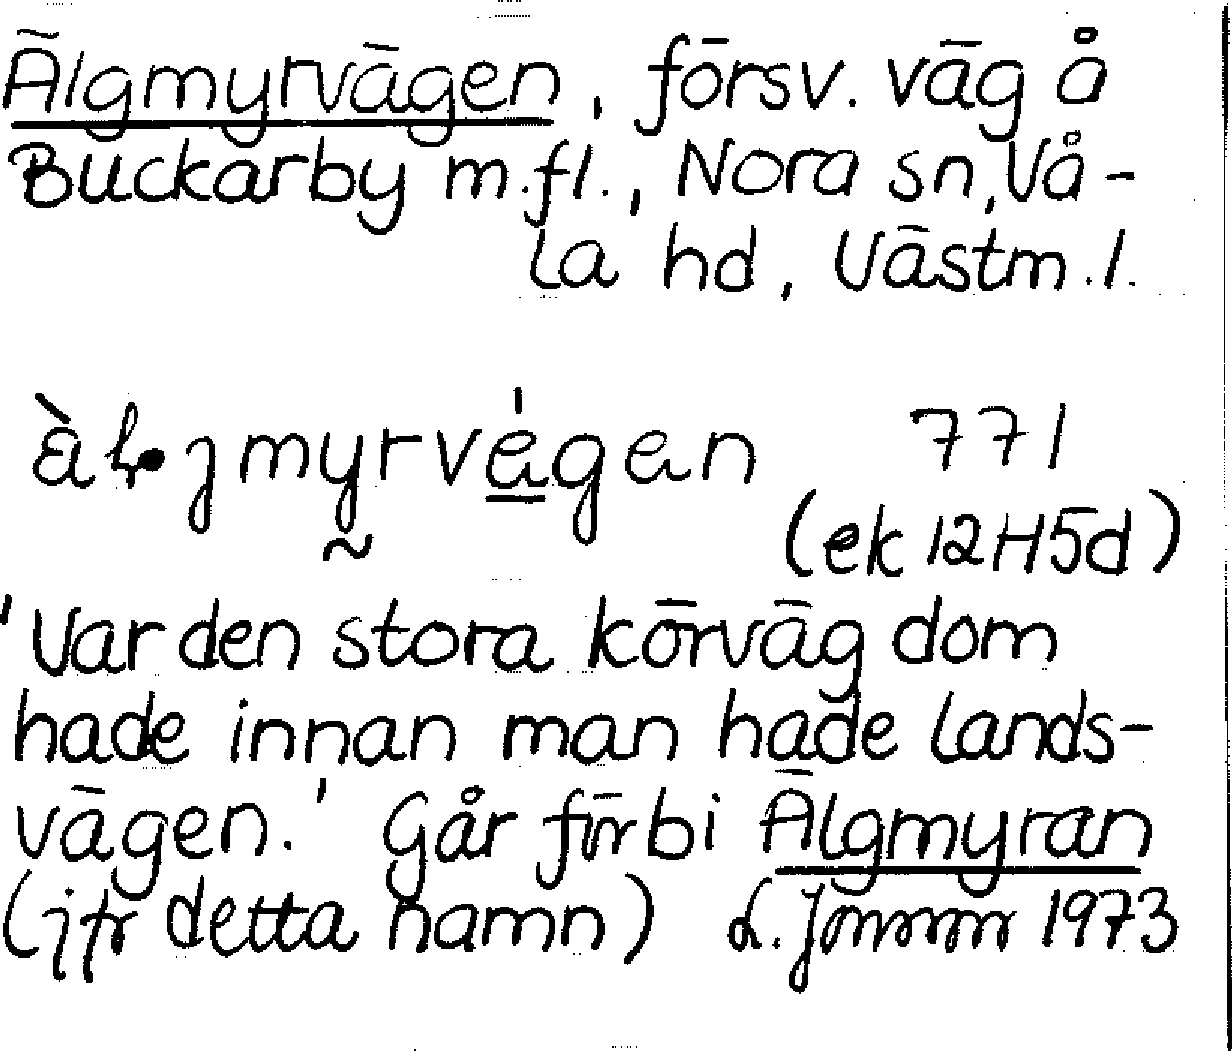 Älgmyrvägen, försv. väg å
Buckarby m.fl., Nora sn, Vå-
la hd, Västm.l.
771
(ek 12H5d)
'Var den stora körväg dom
hade innan man hade lands-
vägen.' Går förbi Älgmyran
(jfr detta namn) 1973